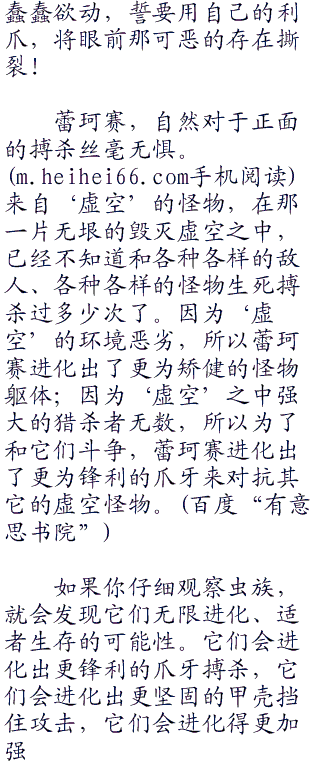 蠢蠢欲动，誓要用自己的利
爪，将眼前那可恶的存在撕
裂！
蕾珂赛，自然对于正面
的搏杀丝毫无惧。
(m.heihei66.com手机阅读)
来自‘虚空’的怪物，在那
一片无垠的毁灭虚空之中，
已经不知道和各种各样的敌
人、各种各样的怪物生死搏
杀过多少次了。因为‘虚
空’的环境恶劣，所以蕾珂
赛进化出了更为矫健的怪物
躯体；因为‘虚空’之中强
大的猎杀者无数，所以为了
和它们斗争，蕾珂赛进化出
了更为锋利的爪牙来对抗其
它的虚空怪物。(百度“有意
思书院”)
如果你仔细观察虫族，
就会发现它们无限进化、适
者生存的可能性。它们会进
化出更锋利的爪牙搏杀，它
们会进化出更坚固的甲壳挡
住攻击，它们会进化得更加
强